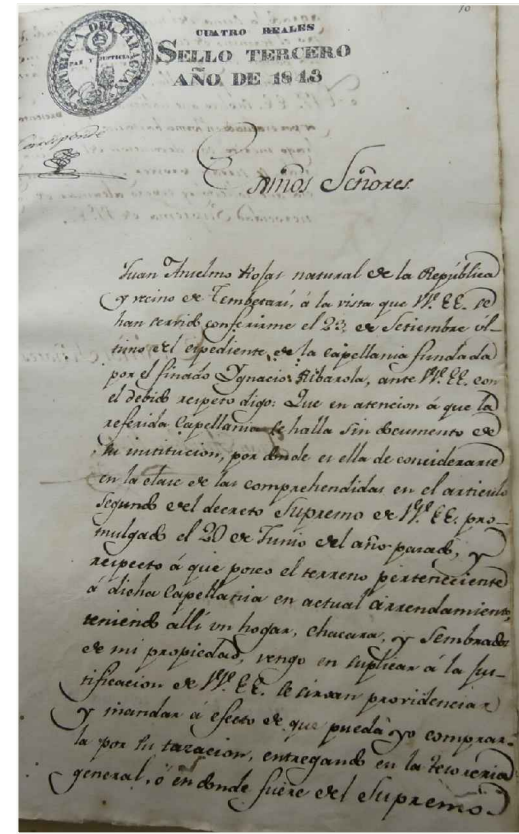 10
CUATRO REALES
SELLO TERCERO
AÑO DE 1843
REPUBLICA DEL PARAGUAY
PAZ Y JUSTICIA
Corresponde
Exmos Señores
Juan Anselmo Rojas natural de la República
y vecino de Tembetarí, á la vista que VV. EE. se
han servido conferirme el 22, de Setiembre úl-
timo del expediente, de la capellania fundada
por el finado Ygnacio Ribarola, ante VV. EE. con
el debido respeto digo: Que en atencion á que la
referida Capellania se halla sin documento de
su institucion, por donde es ella de conciderarse
en la clase de las comprehendidas en el articulo
segundo del decreto Supremo de VV. EE. pro-
mulgado el 20 de Junio del año pasado, y
respecto á que poseo el terreno perteneciente
a dicha Capellania en actual arrendamiento,
teniendo alli un hogar, chacara, y sembrados
de mi propiedad, vengo en suplicar á la jus-
tificacion de VV. EE. se sirvan providenciar
y mandar á efecto de que pueda yo comprar-
la por su tazacion, entregando en la tesoreria
general, ó en donde fuere del Supremo